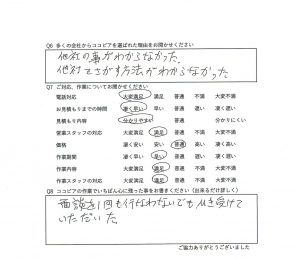 Q6 多くの会社からココピアを選ばれた理由をお聞かせください
他社の事がわからなかった.
他社でさがす方法がわからなかった.
Q7 ご対応、作業についてお聞かせください
電話対応 大変満足 満足 普通 不満 大変不満
お見積もりまでの時間 凄く早い 早い 普通 遅い 凄く遅い
見積もり内容 分かりやすい 普通 分かりにくい
営業スタッフの対応 大変満足 満足 普通 不満 大変不満
価格 凄く安い 安い 普通 高い 凄く高い
作業期間 凄く早い 早い 普通 遅い 凄く遅い
作業内容 大変満足 満足 普通 不満 大変不満
作業スタッフの対応 大変満足 満足 普通 不満 大変不満
Q8 ココピアの作業でいちばん心に残った事をお書きください（出来るだけ詳しく）
面談を1回も行なわないでも引き受けて
いただいた.
ご協力ありがとうございました